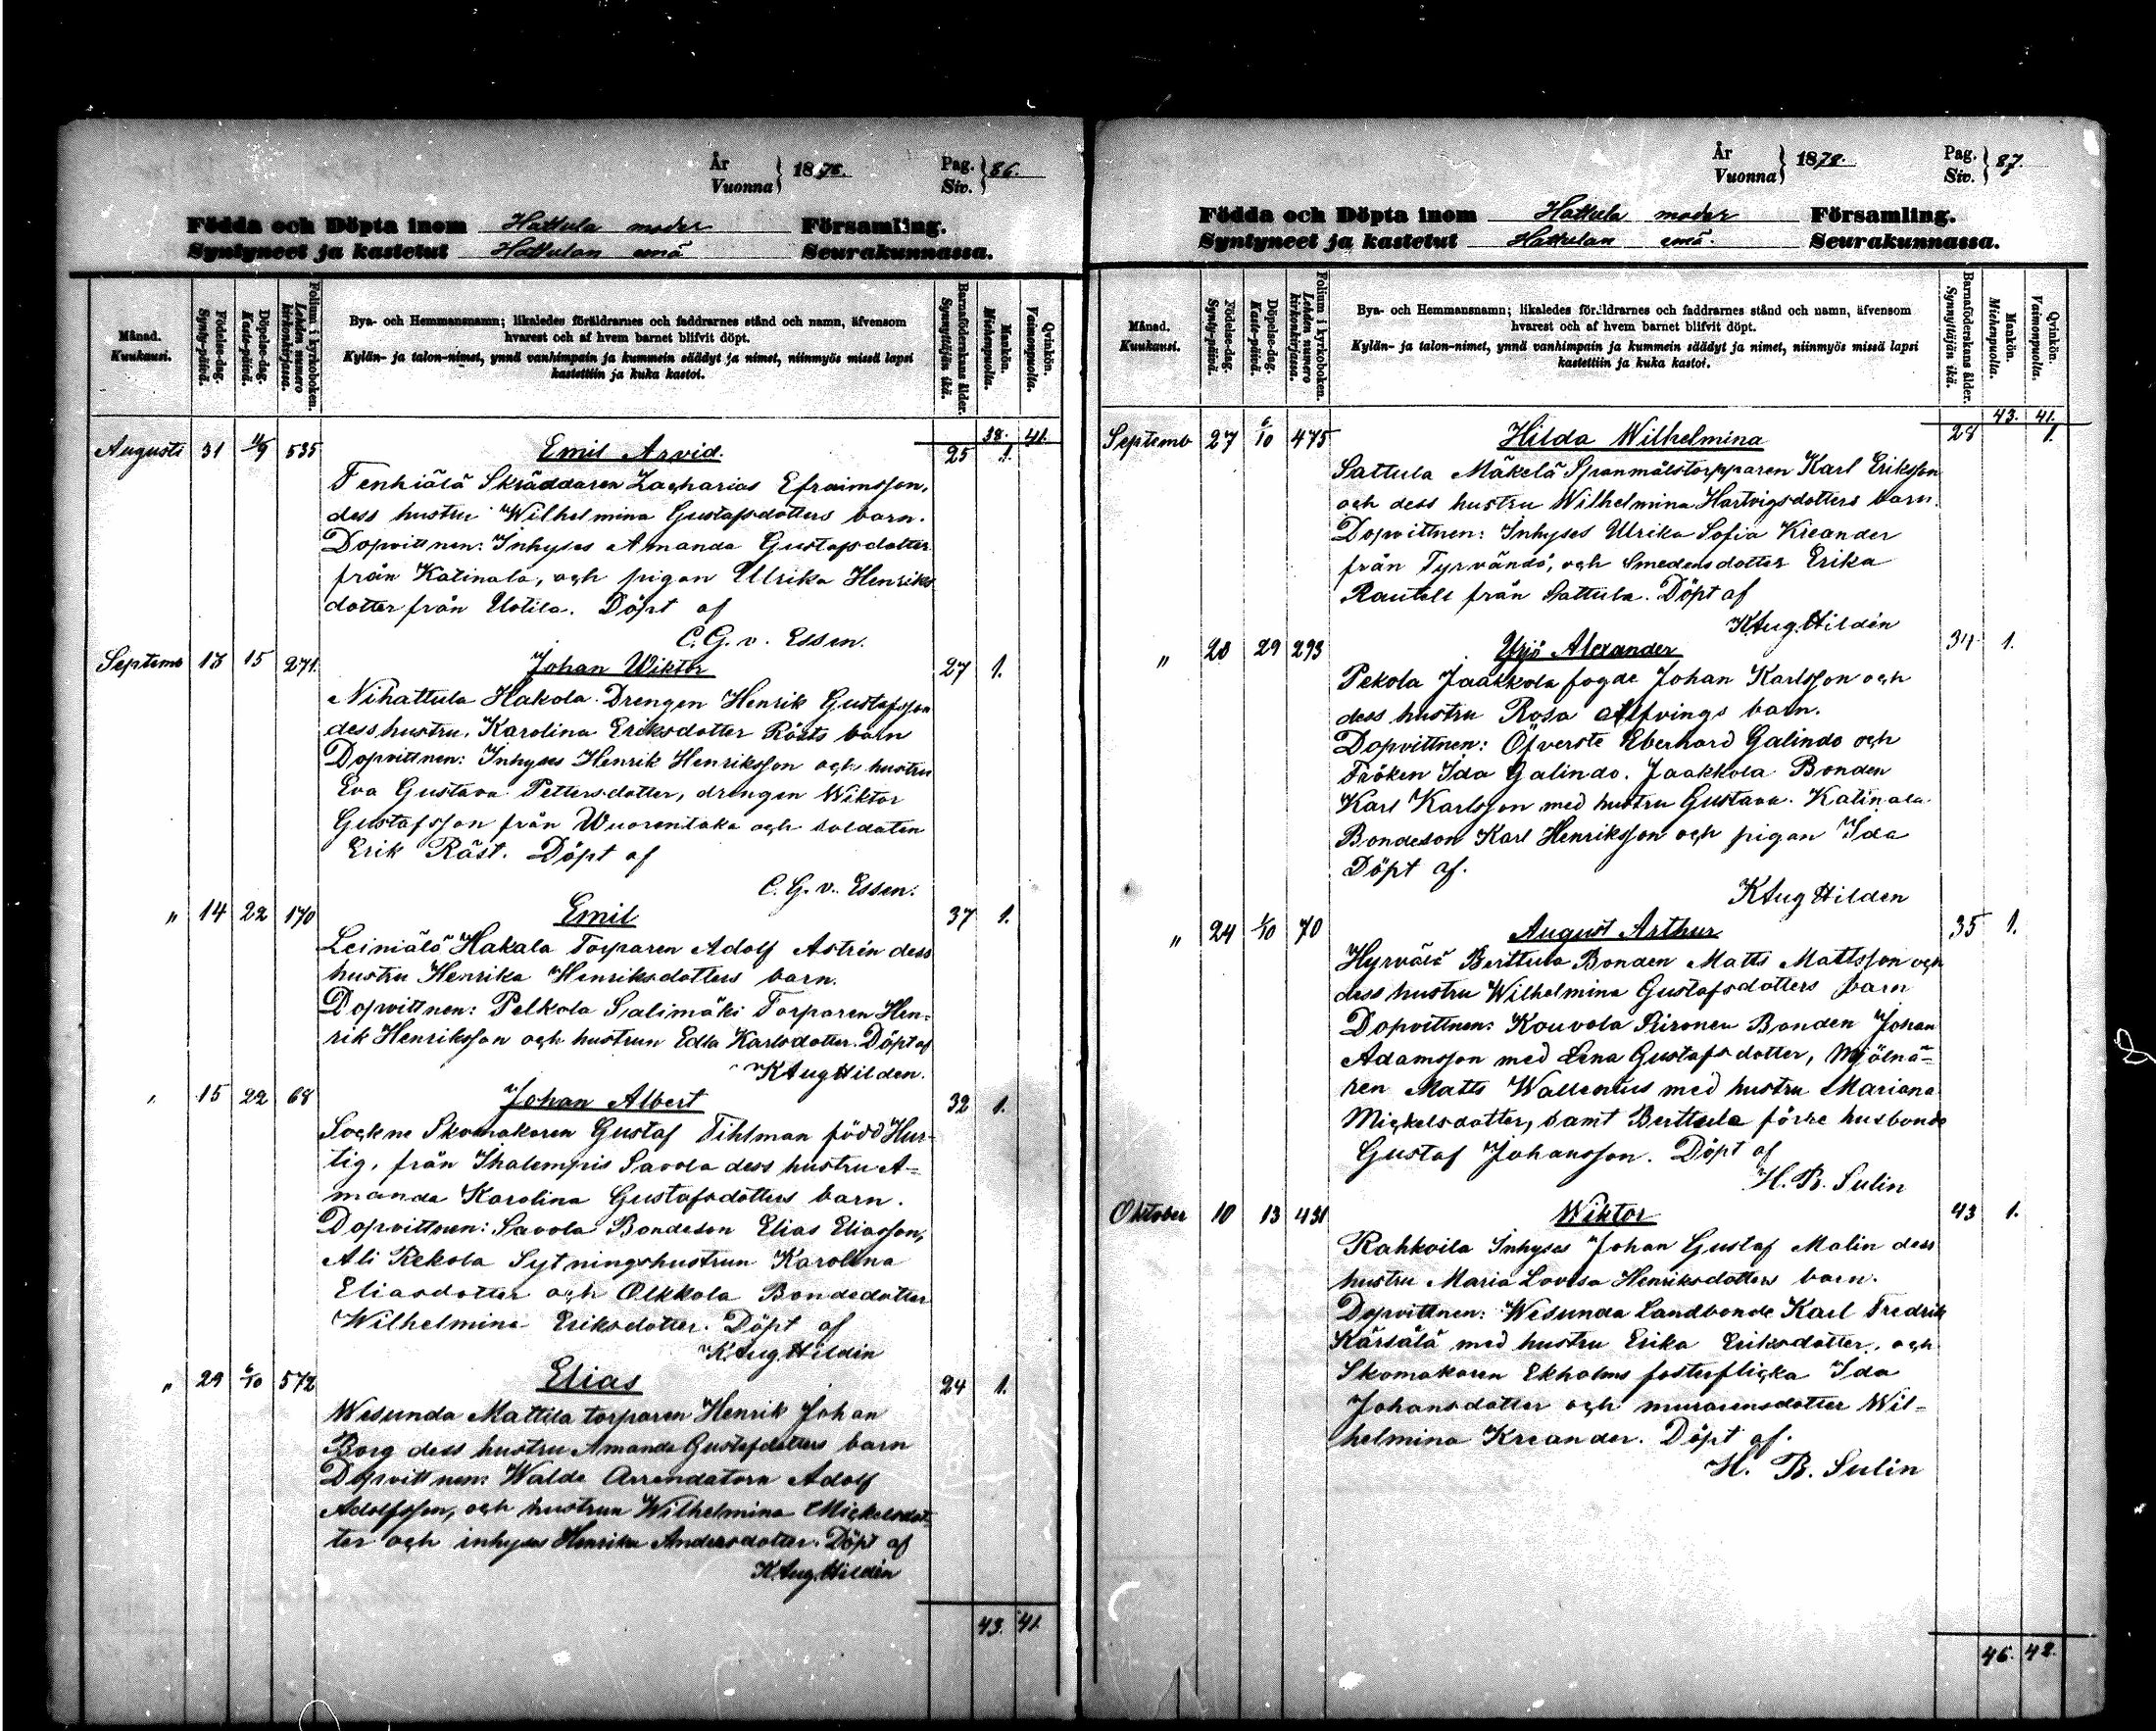 År
Vuonna } 1878. Pag.
Siv. } 86.
Födda och Döpta inom Hattula moder Församling.
Syntyneet ja kastetut Hattulan emä Seurakunnassa.
Månad.
Kuukausi.
Födelse-dag.
Synty-päivä.
Döpelse-dag.
Kaste-päivä.
Folium i kyrkoboken.
Lehden numero kirkonkirjassa.
Bya- och Hemmansnamn; likaledes föräldrarnes och faddrarnes stånd och namn, äfvensom
hvarest och af hvem barnet blifvit döpt.
Kylän- ja talon-nimet, ynnä vanhimpain ja kummein säädyt ja nimet, niinmyös missä lapsi
kastettiin ja kuka kastoi.
Barnaföderskans ålder.
Synnyttäjän ikä.
Mankön.
Miehenpuolia.
Qvinkön.
Vaimonpuolia.
38. 41.
Augusti 31 535 Emil Arvid. 25 1.
Tenhiälä Skräddaren Zacharias Efraimsson,
dess hustru Wilhelmina Gustafsdotters barn.
Dopvittnen: Inhyses Amanda Gustafsdotter
från Katinala, och pigan Ulrika Henriks
dotter från Uotila. Döpt af
C. G. v. Essen.
Septemb 13 15 271. Johan Wiktor 27 1.
Nihattula Hakola Drengen Henrik Gustafsson
dess hustru, Karolina Eriksdotter Rästs barn
Dopvittnen: Inhyses Henrik Henriksson och hustru
Eva Gustava Pettersdotter, drengen Wiktor
Gustafsson från Wuorentaka och soldaten
Erik Räst. Döpt af
C. G. v. Essen.
" 14 22 170 Emil 37 1.
Leiniälä Hakala Torparen Adolf Astrén dess
hustru Henrika Henriksdotters barn.
Dopvittnen: Pelkola Salimäki Torparen Hen-
rik Henriksson och hustrun Edla Karlsdotter. Döpt af
K Aug Hilden.
" 15 22 68 Johan Albert 32 1.
Sockne Skomakaren Gustaf Tihlman född Hur-
tig, från Ihalempis Savola dess hustru A-
manda Karolina Gustafsdotters barn.
Dopvittnen: Savola Bondeson Elias Eliasson,
Ali Rekola Sytningshustrun Karolina
Eliasdotter och Olkkola Bondedotter
Wilhelmina Eriksdotter. Döpt af
K. Aug. Hildén
" 29 6/10 572 Elias 24 1.
Wesunda Mattila torparen Henrik Johan
Borg dess hustru Amanda Gustafdotters barn
Dopvittnen: Walde Arrendatorn Adolf
Adolfsson, och hustrun Wilhelmina Mickelsdot-
ter och inhyses Henrika Andersdotter. Döpt af
K. Aug. Hildén
43. 41.
År
Vuonna } 1878. Pag.
Siv. } 87.
Födda och Döpta inom Hattula moder Församling.
Syntyneet ja kastetut Hattulan emä. Seurakunnassa.
Månad.
Kuukausi.
Födelse-dag.
Synty-päivä.
Döpelse-dag.
Kaste-päivä.
Folium i kyrkoboken.
Lehden numero kirkonkirjassa.
Bya- och Hemmansnamn; likaledes föräldrarnes och faddrarnes stånd och namn, äfvensom
hvarest och af hvem barnet blifvit döpt.
Kylän- ja talon-nimet, ynnä vanhimpain ja kummein säädyt ja nimet, niinmyös missä lapsi
kastettiin ja kuka kastoi.
Barnaföderskans ålder.
Synnyttäjän ikä.
Mankön.
Miehenpuolia.
Qvinkön.
Vaimonpuolia.
43. 41.
Septemb 27 6/10 475 Hilda Wilhelmina 28 1.
Sattula Mäkelä Spanmålstorpparen Karl Eriksson
och dess hustru Wilhelmina Hartvigsdotters barn.
Dopvittnen: Inhyses Ulrika Sofia Kreander
från Tyrvändö, och Smedensdotter Erika
Rautell från Sattula. Döpt af
K. Aug. Hildén
" 28 29 293 Yrjö Alexander 34 1.
Pekola Jaakkola fogde Johan Karlsson och
dess hustru Rosa Alfvings barn.
Dopvittnen: Öfverste Eberhard Galindo och
Fröken Ida Galindo. Jaakkola Bonden
Karl Karlsson med hustru Gustava. Katinala
Bondeson Karl Henriksson och pigan Ida
Döpt af.
K Aug Hilden
" 24 1/10 70 August Arthur 35 1.
Hyrvälä Berttula Bonden Matts Mattsson och
dess hustru Wilhelmina Gustafsdotters barn
Dopvittnen: Kouvola Piironen Bonden Johan
Adamsson med Lena Gustafsdotter, Mjölna-
ren Matts Wallenius med hustru Mariana
Mickelsdotter, samt Berttula förre husbonde
Gustaf Johansson. Döpt af
H. B. Sulin
Oktober 10 13 431 Wiktor 43 1.
Rahkoila Inhyses Johan Gustaf Malin dess
hustru Maria Lovisa Henriksdotters barn.
Dopvittnen: Wesunda Landbonde Karl Fredrik
Kärsälä med hustru Erika Eriksdotter, och
Skomakaren Ekholms fosterflicka Ida
Johansdotter och murarensdotter Wil-
helmina Kreander. Döpt af.
H. B. Sulin
46. 42.